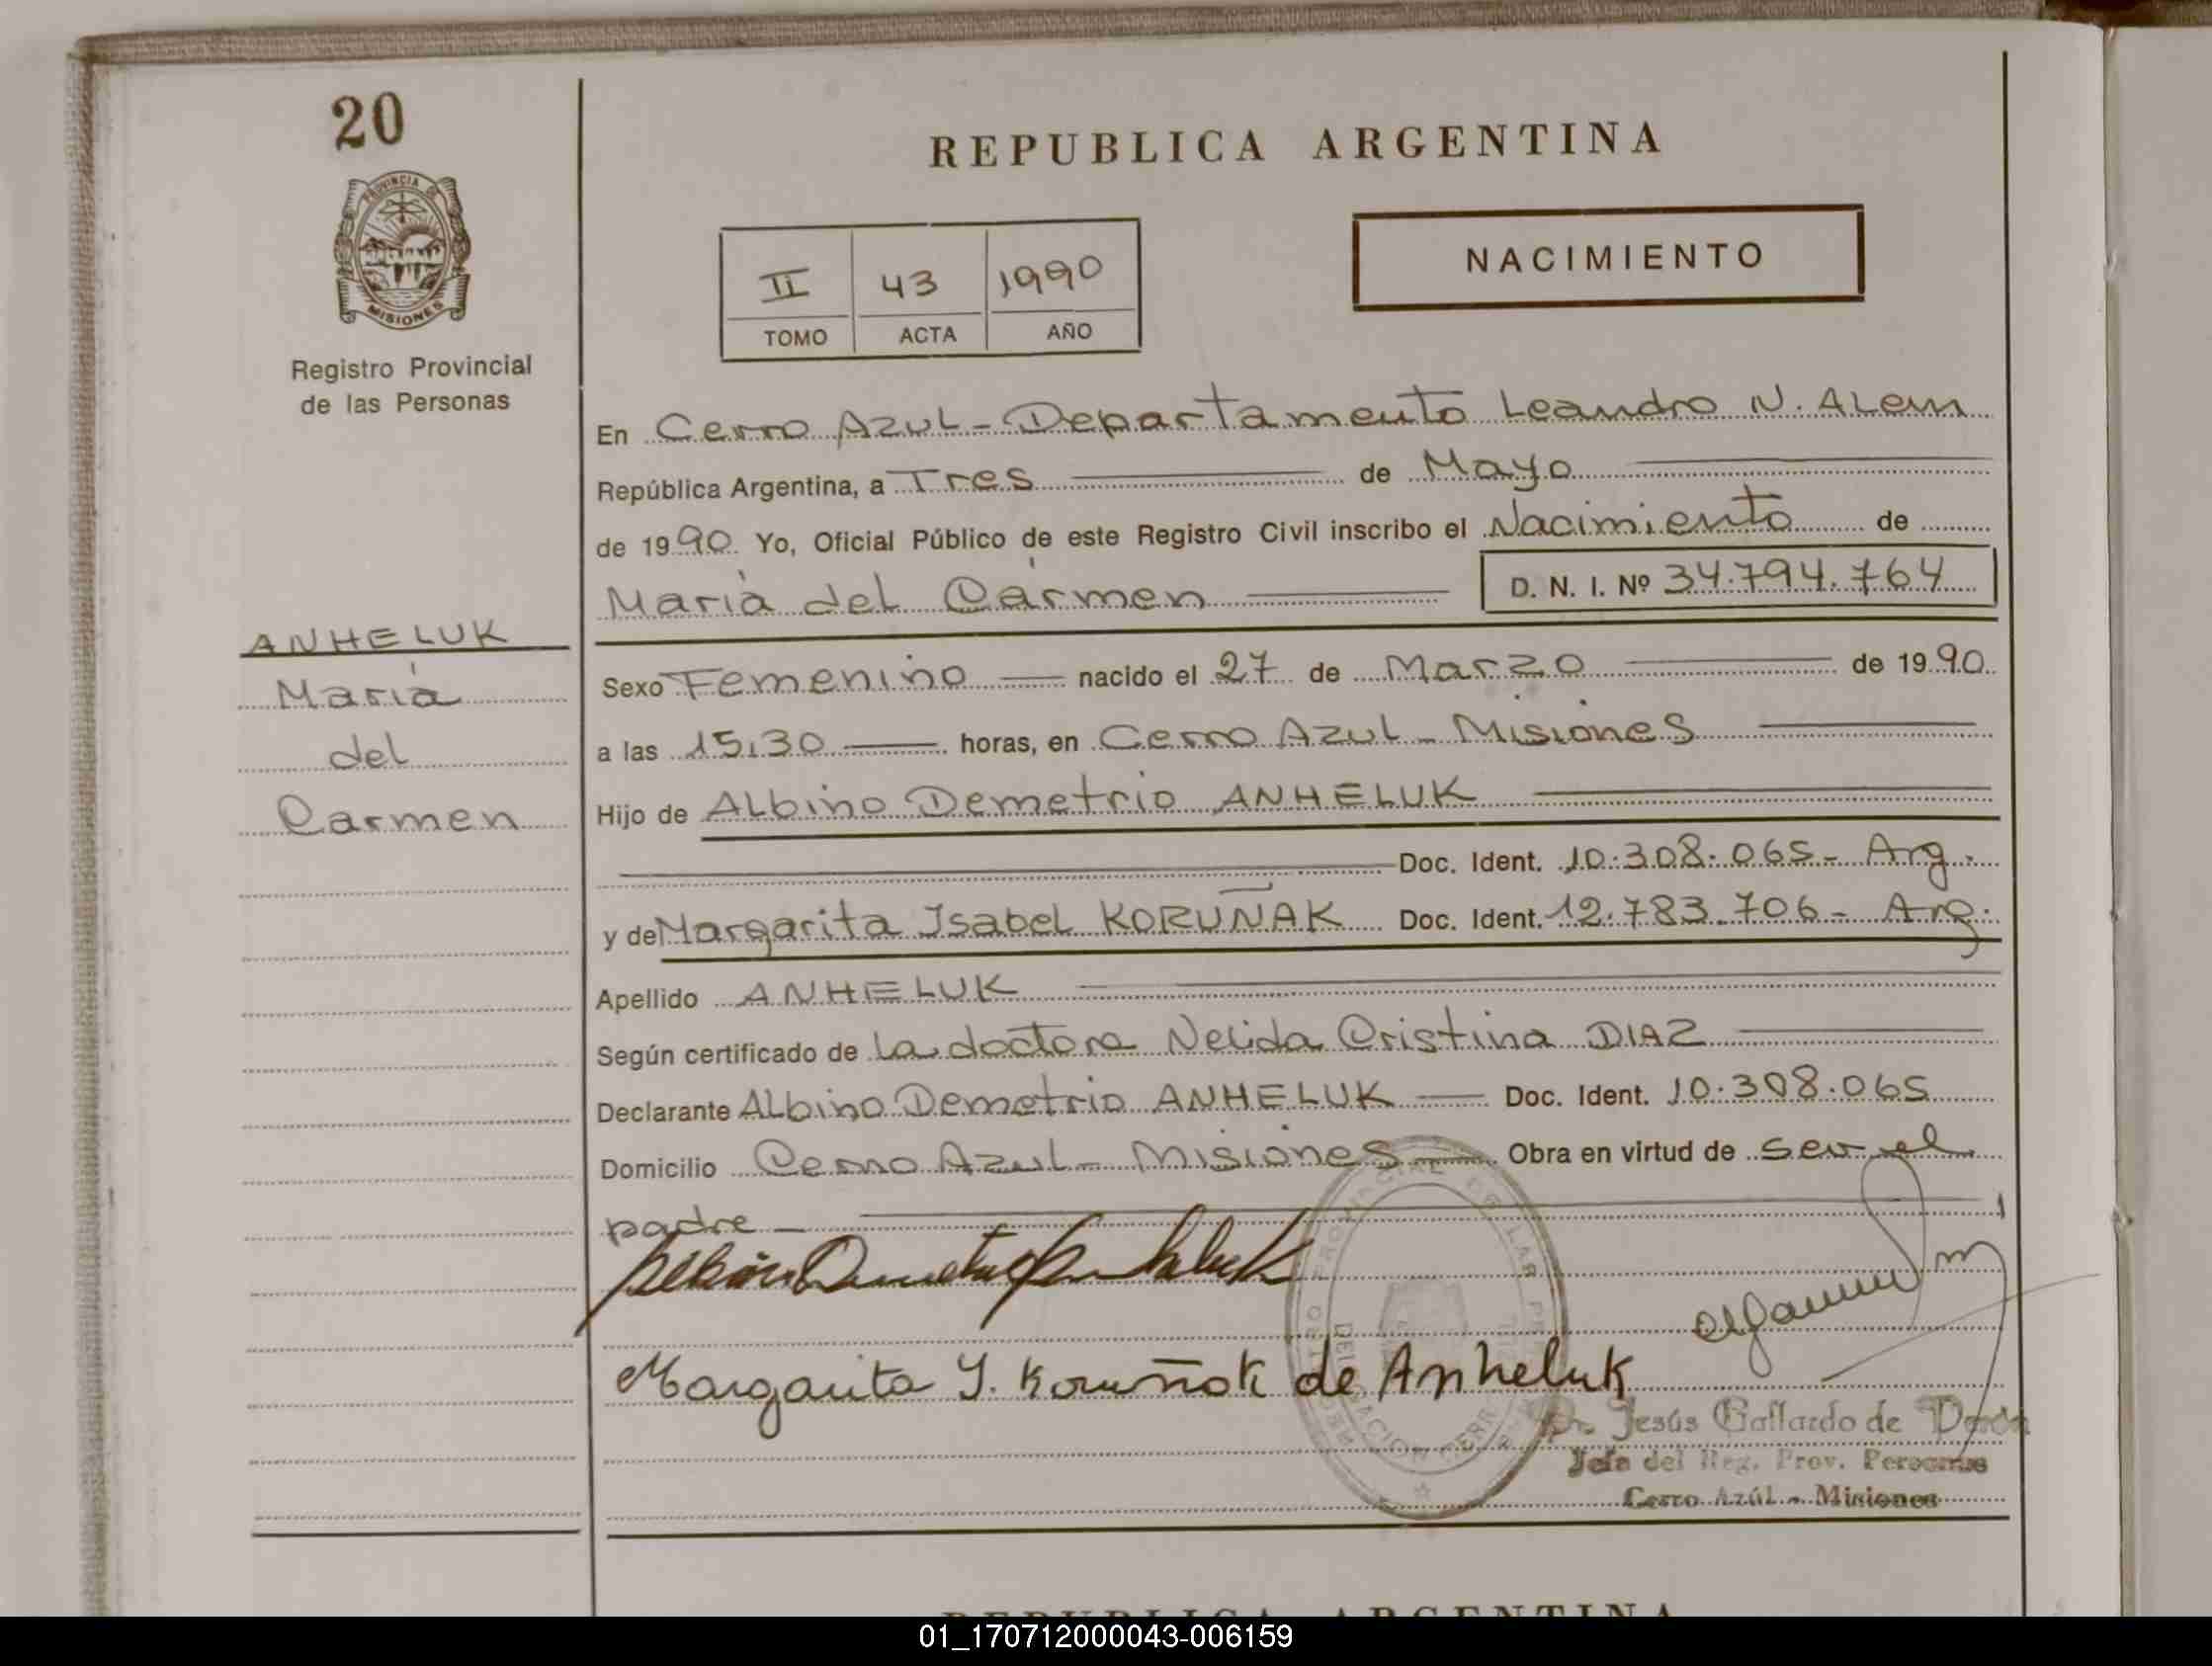 20
PROVINCIA DE
MISIONES
Registro Provincial
de las Personas
REPUBLICA ARGENTINA
II 43 1990
TOMO ACTA AÑO
NACIMIENTO
En Cerro Azul - Departamento Leandro N. Alem
República Argentina, a Tres de Mayo
de 1990. Yo, Oficial Público de este Registro Civil inscribo el Nacimiento de
María del Carmen D. N. I. Nº 34.794.764
ANHELUK
María
del
Carmen
Sexo Femenino nacido el 27 de Marzo de 1990
a las 15.30 horas, en Cerro Azul - Misiones
Hijo de Albino Demetrio ANHELUK
Doc. Ident. 10.308.065 - Arg.
y de Margarita Isabel KORUÑAK Doc. Ident. 12.783.706 - Arg.
Apellido ANHELUK
Según certificado de la doctora Nelida Cristina DIAZ
Declarante Albino Demetrio ANHELUK Doc. Ident. 10.308.065
Domicilio Cerro Azul - Misiones Obra en virtud de ser el
padre
Margarita Y. Koruñok de Anheluk
Jesús Gallardo de
Jefa del Reg. Prov. Personas
Cerro Azúl - Misiones
REPUBLICA ARGENTINA
01_170712000043-006159